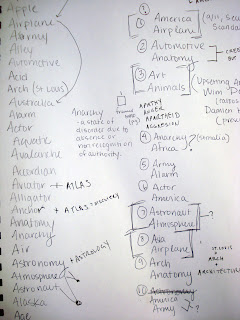 Apple
Airplane
Army
Alley
Automotive
Acid
Arch (St Louis)
Australia
Alarm
Actor
Aquatic
Avalanche
Accordian
Aviator + ATLAS
Alligator
Anchor + ATLAS
Anatomy
Anarchy
Air
Astronomy + ASTROLOGY
Atmosphere
Astronaut
Alaska
Age
Anarchy
- a state of
disorder due to
absence or non
recognition
of authority.
APATHY
ANGER
APARTHEID
AGGRESSION
1 America
Airplane
2 Automotive
Anatomy
3 Art
Animals
4 Anarchy? (somalia)
Africa
5 Army
Alarm
6 Actor
America
7 Astronaut
Atmosphere
8 Asia
Airplane
9 Arch
Anatomy
ST. LOUIS
ARCH
ARCHITECTURE
10
America
Army ?
Upcoming Ar
Damien